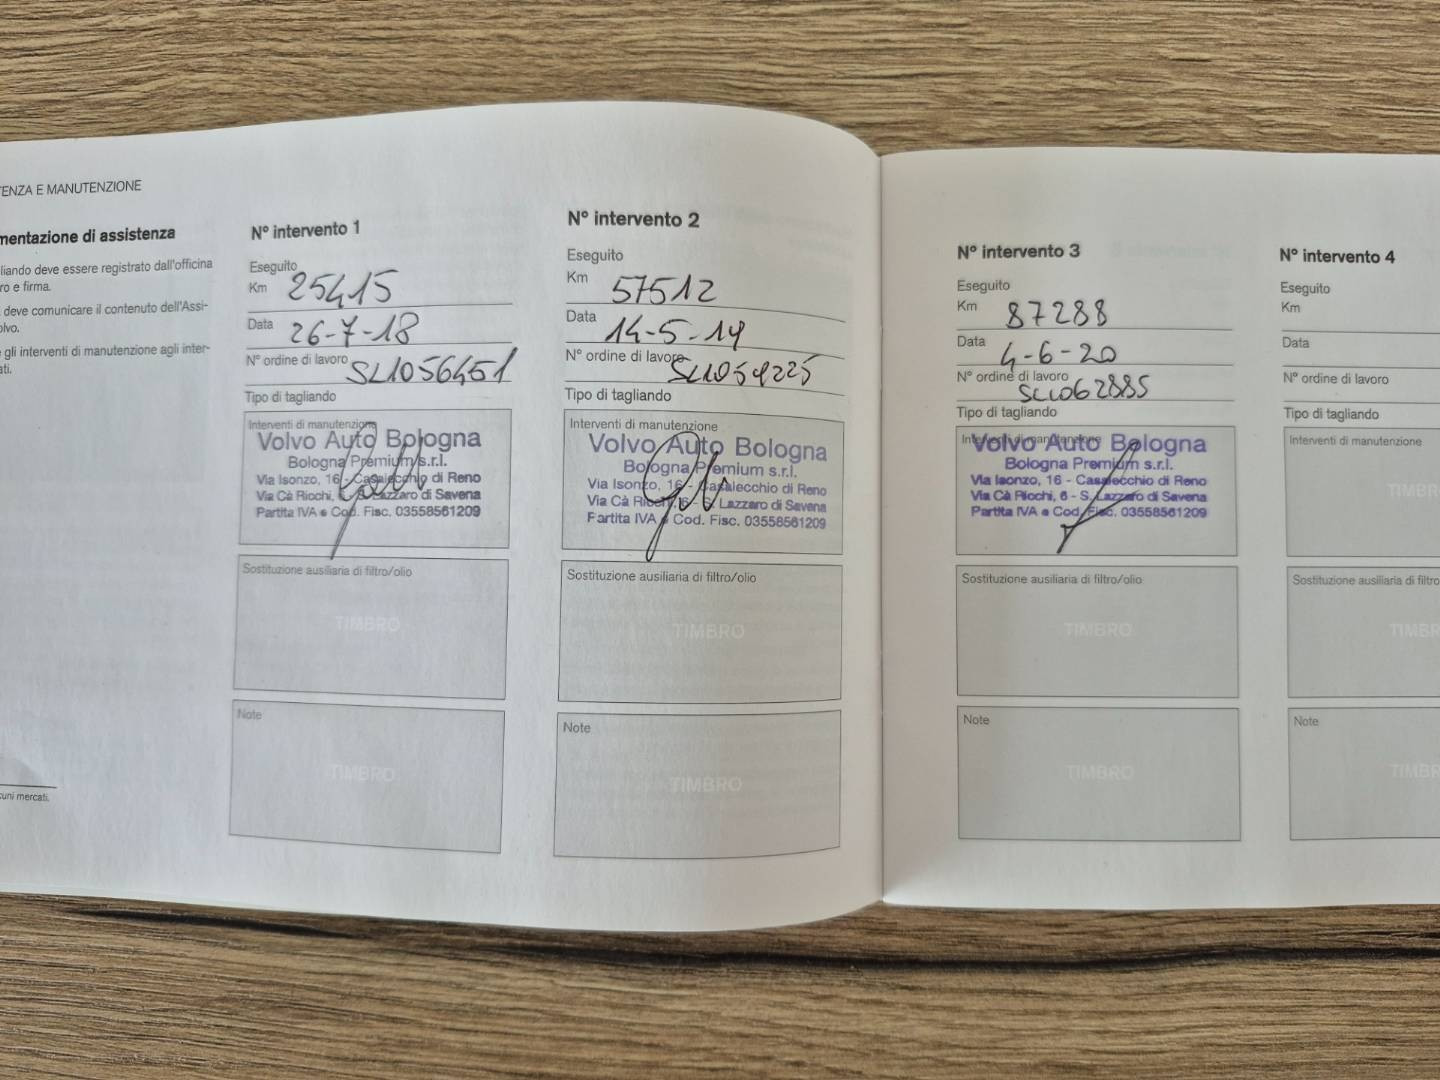 TENZA E MANUTENZIONE
mentazione di assistenza
liando deve essere registrato dall'officina
ro e firma.
deve comunicare il contenuto dell'Assi-
olvo.
gli interventi di manutenzione agli inter-
ati.
cuni mercati.
N° intervento 1
Eseguito
Km 25415
Data 26-7-18
N° ordine di lavoro SL1056451
Tipo di tagliando
Interventi di manutenzione
Volvo Auto Bologna
Bologna Premium s.r.l.
Via Isonzo, 16 - Casalecchio di Reno
Via Cà Ricchi, 6 - S. Lazzaro di Savena
Partita IVA e Cod. Fisc. 03558561209
Sostituzione ausiliaria di filtro/olio
TIMBRO
Note
TIMBRO
N° intervento 2
Eseguito
Km 57512
Data 14-5-19
N° ordine di lavoro SL1059225
Tipo di tagliando
Interventi di manutenzione
Volvo Auto Bologna
Bologna Premium s.r.l.
Via Isonzo, 16 - Casalecchio di Reno
Via Cà Ricchi, 6 - S. Lazzaro di Savena
Partita IVA e Cod. Fisc. 03558561209
Sostituzione ausiliaria di filtro/olio
TIMBRO
Note
TIMBRO
N° intervento 3
Eseguito
Km 87288
Data 4-6-20
N° ordine di lavoro SL1062885
Tipo di tagliando
Interventi di manutenzione
Volvo Auto Bologna
Bologna Premium s.r.l.
Via Isonzo, 16 - Casalecchio di Reno
Via Cà Ricchi, 6 - S. Lazzaro di Savena
Partita IVA e Cod. Fisc. 03558561209
Sostituzione ausiliaria di filtro/olio
TIMBRO
Note
TIMBRO
N° intervento 4
Eseguito
Km
Data
N° ordine di lavoro
Tipo di tagliando
Interventi di manutenzione
TIMBR
Sostituzione ausiliaria di filtro
TIMBR
Note
TIMBR